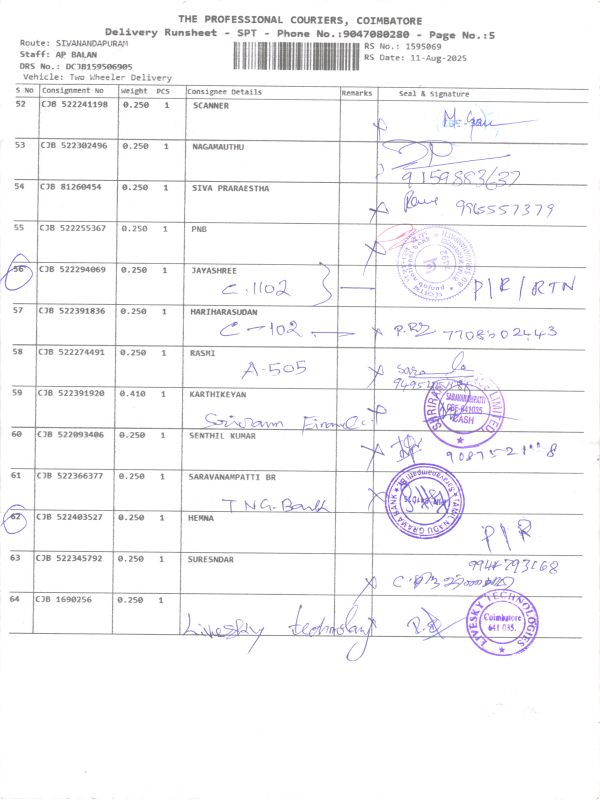 THE PROFESSIONAL COURIERS, COIMBATORE
Delivery Runsheet - SPT - Phone No.:9047080280 - Page No.:5
Route: SIVANANDAPURAM
RS No.: 1595069
Staff: AP BALAN
RS Date: 11-Aug-2025
DRS No.: DCJB159506905
Vehicle: Two Wheeler Delivery
S No Consignment No Weight PCS Consignee Details Remarks Seal & Signature
52 CJB 522241198 0.250 1 SCANNER
53 CJB 522302496 0.250 1 NAGAMUTHU
9159883637
54 CJB 81260454 0.250 1 SIVA PRARAESTHA
9965557379
55 CJB 522255367 0.250 1 PNB
56 CJB 522294069 0.250 1 JAYASHREE
C-1102 P/R/RTN
57 CJB 522391836 0.250 1 HARIHARASUDAN
C-102
58 CJB 522274491 0.250 1 RASMI
A-505
59 CJB 522391920 0.410 1 KARTHIKEYAN
SARAVANAMPATTI
CBE-641035
CASH
60 CJB 522093406 0.250 1 SENTHIL KUMAR
61 CJB 522366377 0.250 1 SARAVANAMPATTI BR
TNG-Bank
TAMIL NADU GRAMA BANK
62 CJB 522403527 0.250 1 HEMNA
P/R
63 CJB 522345792 0.250 1 SURESNDAR
64 CJB 1690256 0.250 1
Livesky technology
LIVESKY TECHNOLOGIES
Coimbatore
641 035.